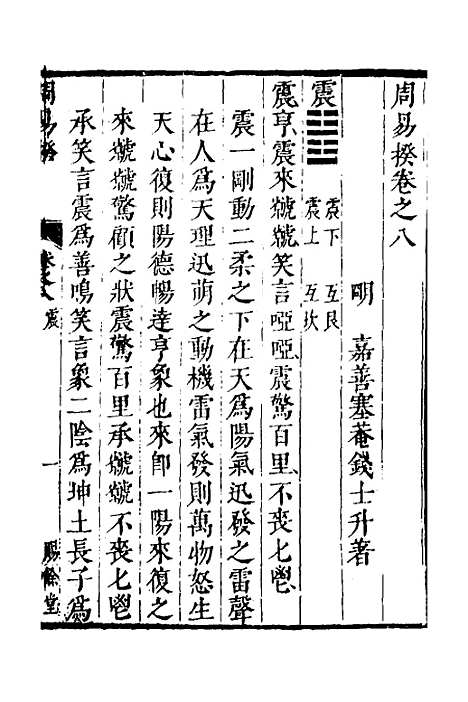 周易揆卷之八
明 嘉善塞菴錢士升著
震 震下 互艮
震上 互坎
震亨震來虩虩笑言啞啞震驚百里不喪匕鬯
震一剛動二柔之下在天爲陽氣迅發之雷聲
在人爲天理迅萌之動機雷氣發則萬物怒生
天心復則陽德暢達亨象也來卽一陽來復之
來虩虩驚顧之狀震驚百里承虩虩不喪匕鬯
承笑言震爲善鳴笑言象二陰爲坤土長子爲
周易揆 卷之八 震 一 賜餘堂